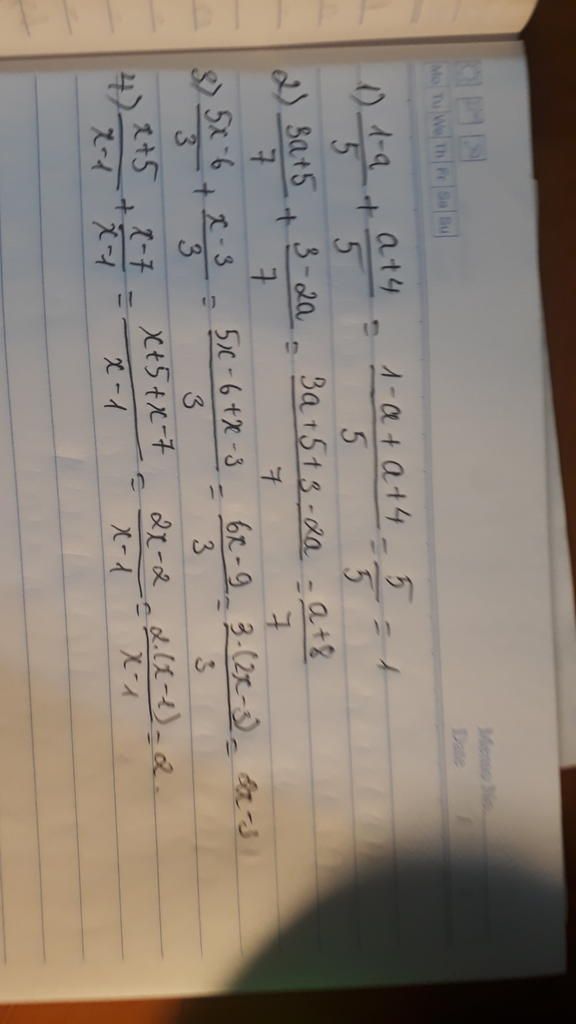 Memo No.
Date
Mo Tu We Th Fr Sa Su
1) (1-a)/5 + (a+4)/5 = (1-a+a+4)/5 = 5/5 = 1
2) (3a+5)/7 + (3-2a)/7 = (3a+5+3-2a)/7 = (a+8)/7
3) (5x-6)/3 + (x-3)/3 = (5x-6+x-3)/3 = (6x-9)/3 = 3·(2x-3)/3 = 2x-3
4) (x+5)/(x-1) + (x-7)/(x-1) = (x+5+x-7)/(x-1) = (2x-2)/(x-1) = 2·(x-1)/(x-1) = 2.